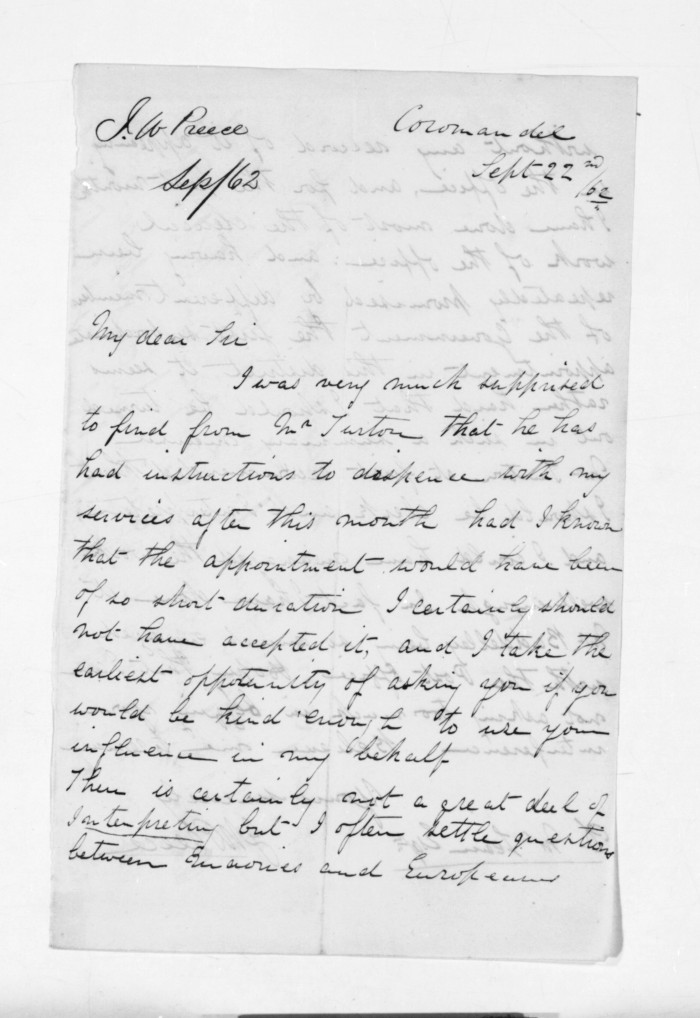 J. W. Preece
Sep/62
Coromandel
Sept 22nd /62
My dear Sir
I was very much supprised
to find from Mr Turton that he has
had instructions to dispence with my
services after this month had I known
that the appointment would have been
of so short duration I certainly should
not have accepted it, and I take the
earliest oppotunity of asking you if you
would be kind enough to use your
influence in my behalf
There is certainly not a great deel of
Interpreting but I often settle questions
between Maories and Europeans